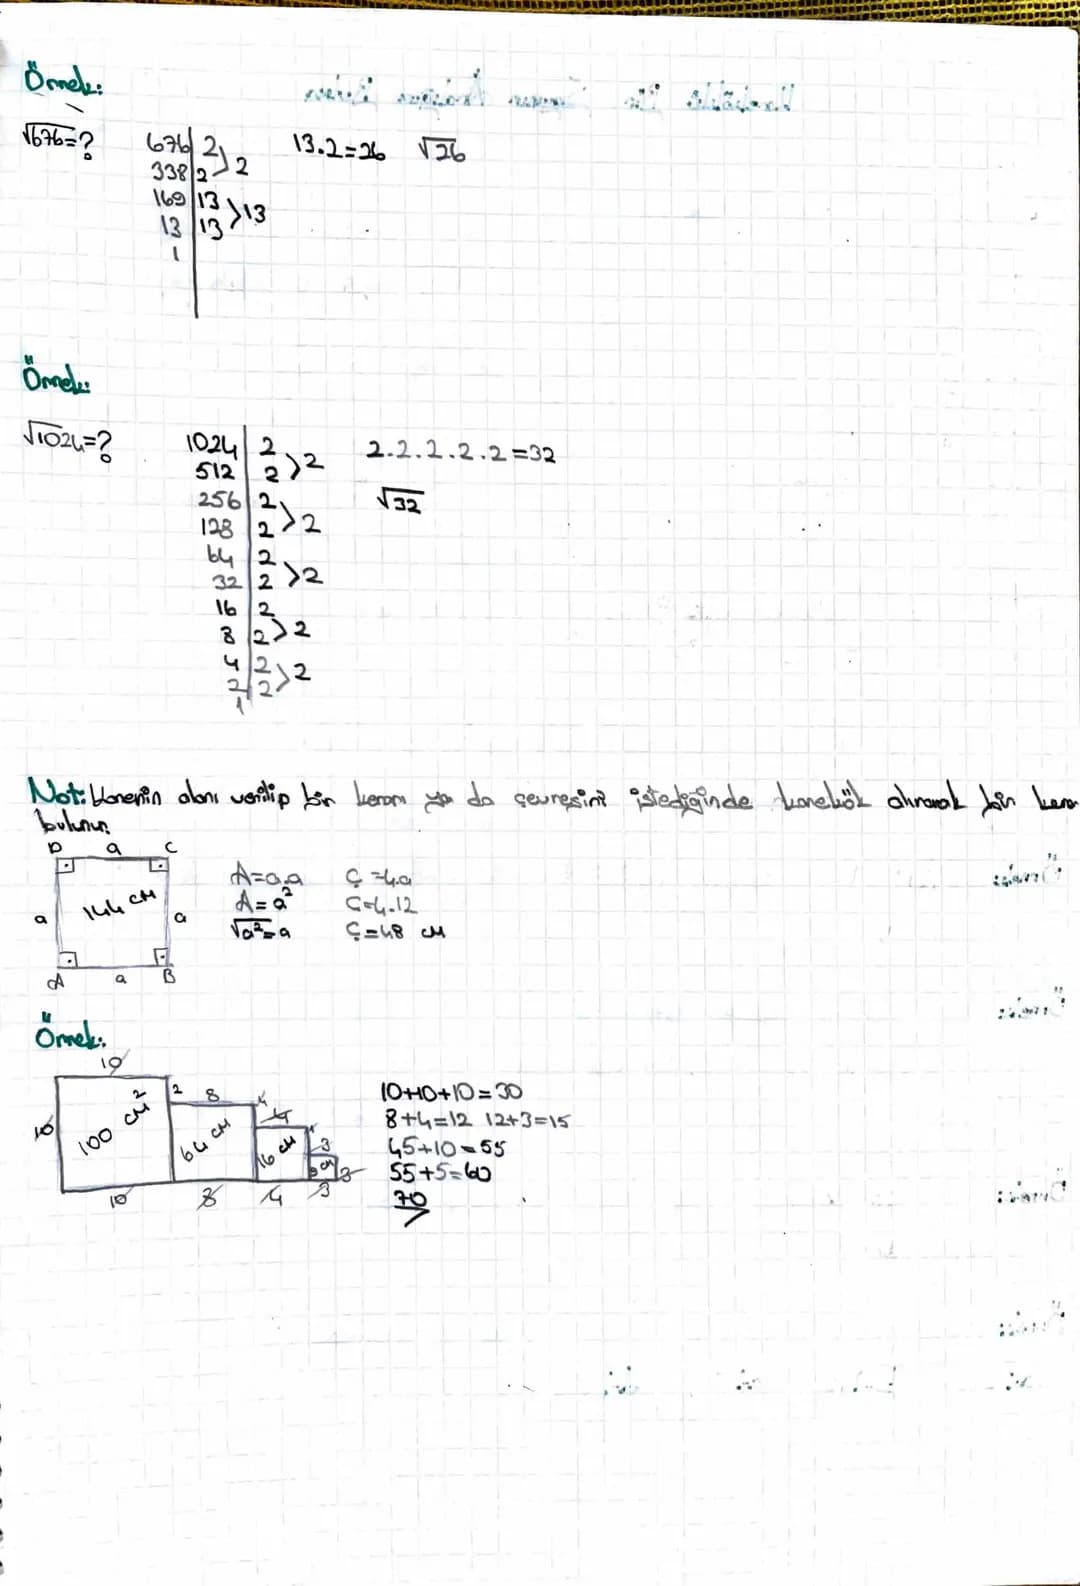 Örnek:
√676=? 676 2 13.2=26 √26
338 2 >2
169 13
13 13 >13
1
Örnek:
√1024=? 1024 2 2.2.2.2.2=32
512 2 >2
256 2 √32
128 2 >2
64 2
32 2 >2
16 2
8 2 >2
4 2
2 2 >2
1
Not: Karenin alanı verilip bir kenarı ya da çevresini istediğinde karekök alınarak bir kenar
bulunur.
D a C
A=a.a Ç=4.a
a 144 cm a A=a² Ç=4.12
√a²=a Ç=48 cm
A a B
Örnek:
10
2 8 4 4 10+10+10=30
10 100 cm² 64 cm 16 cm 3 8+4=12 12+3=15
9 cm 3 45+10=55
10 8 4 3 55+5=60
70